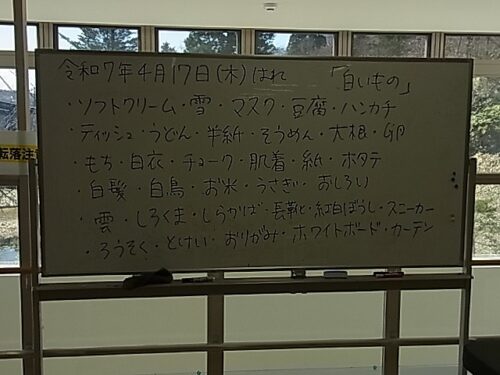 令和7年4月17日(木)はれ 「白いもの」
・ソフトクリーム・雪・マスク・豆腐・ハンカチ
・ティッシュ・うどん・半紙・そうめん・大根・
・もち・白衣・チョーク・肌着・紙・ホタテ
・白髪・白鳥・お米・うさぎ・おしろい
・雲・しろくま・しらかば・長靴・紅白ぼうし・スニーカー
・ろうそく・とけい・おりがみ・ホワイトボード・カーテン
転落注